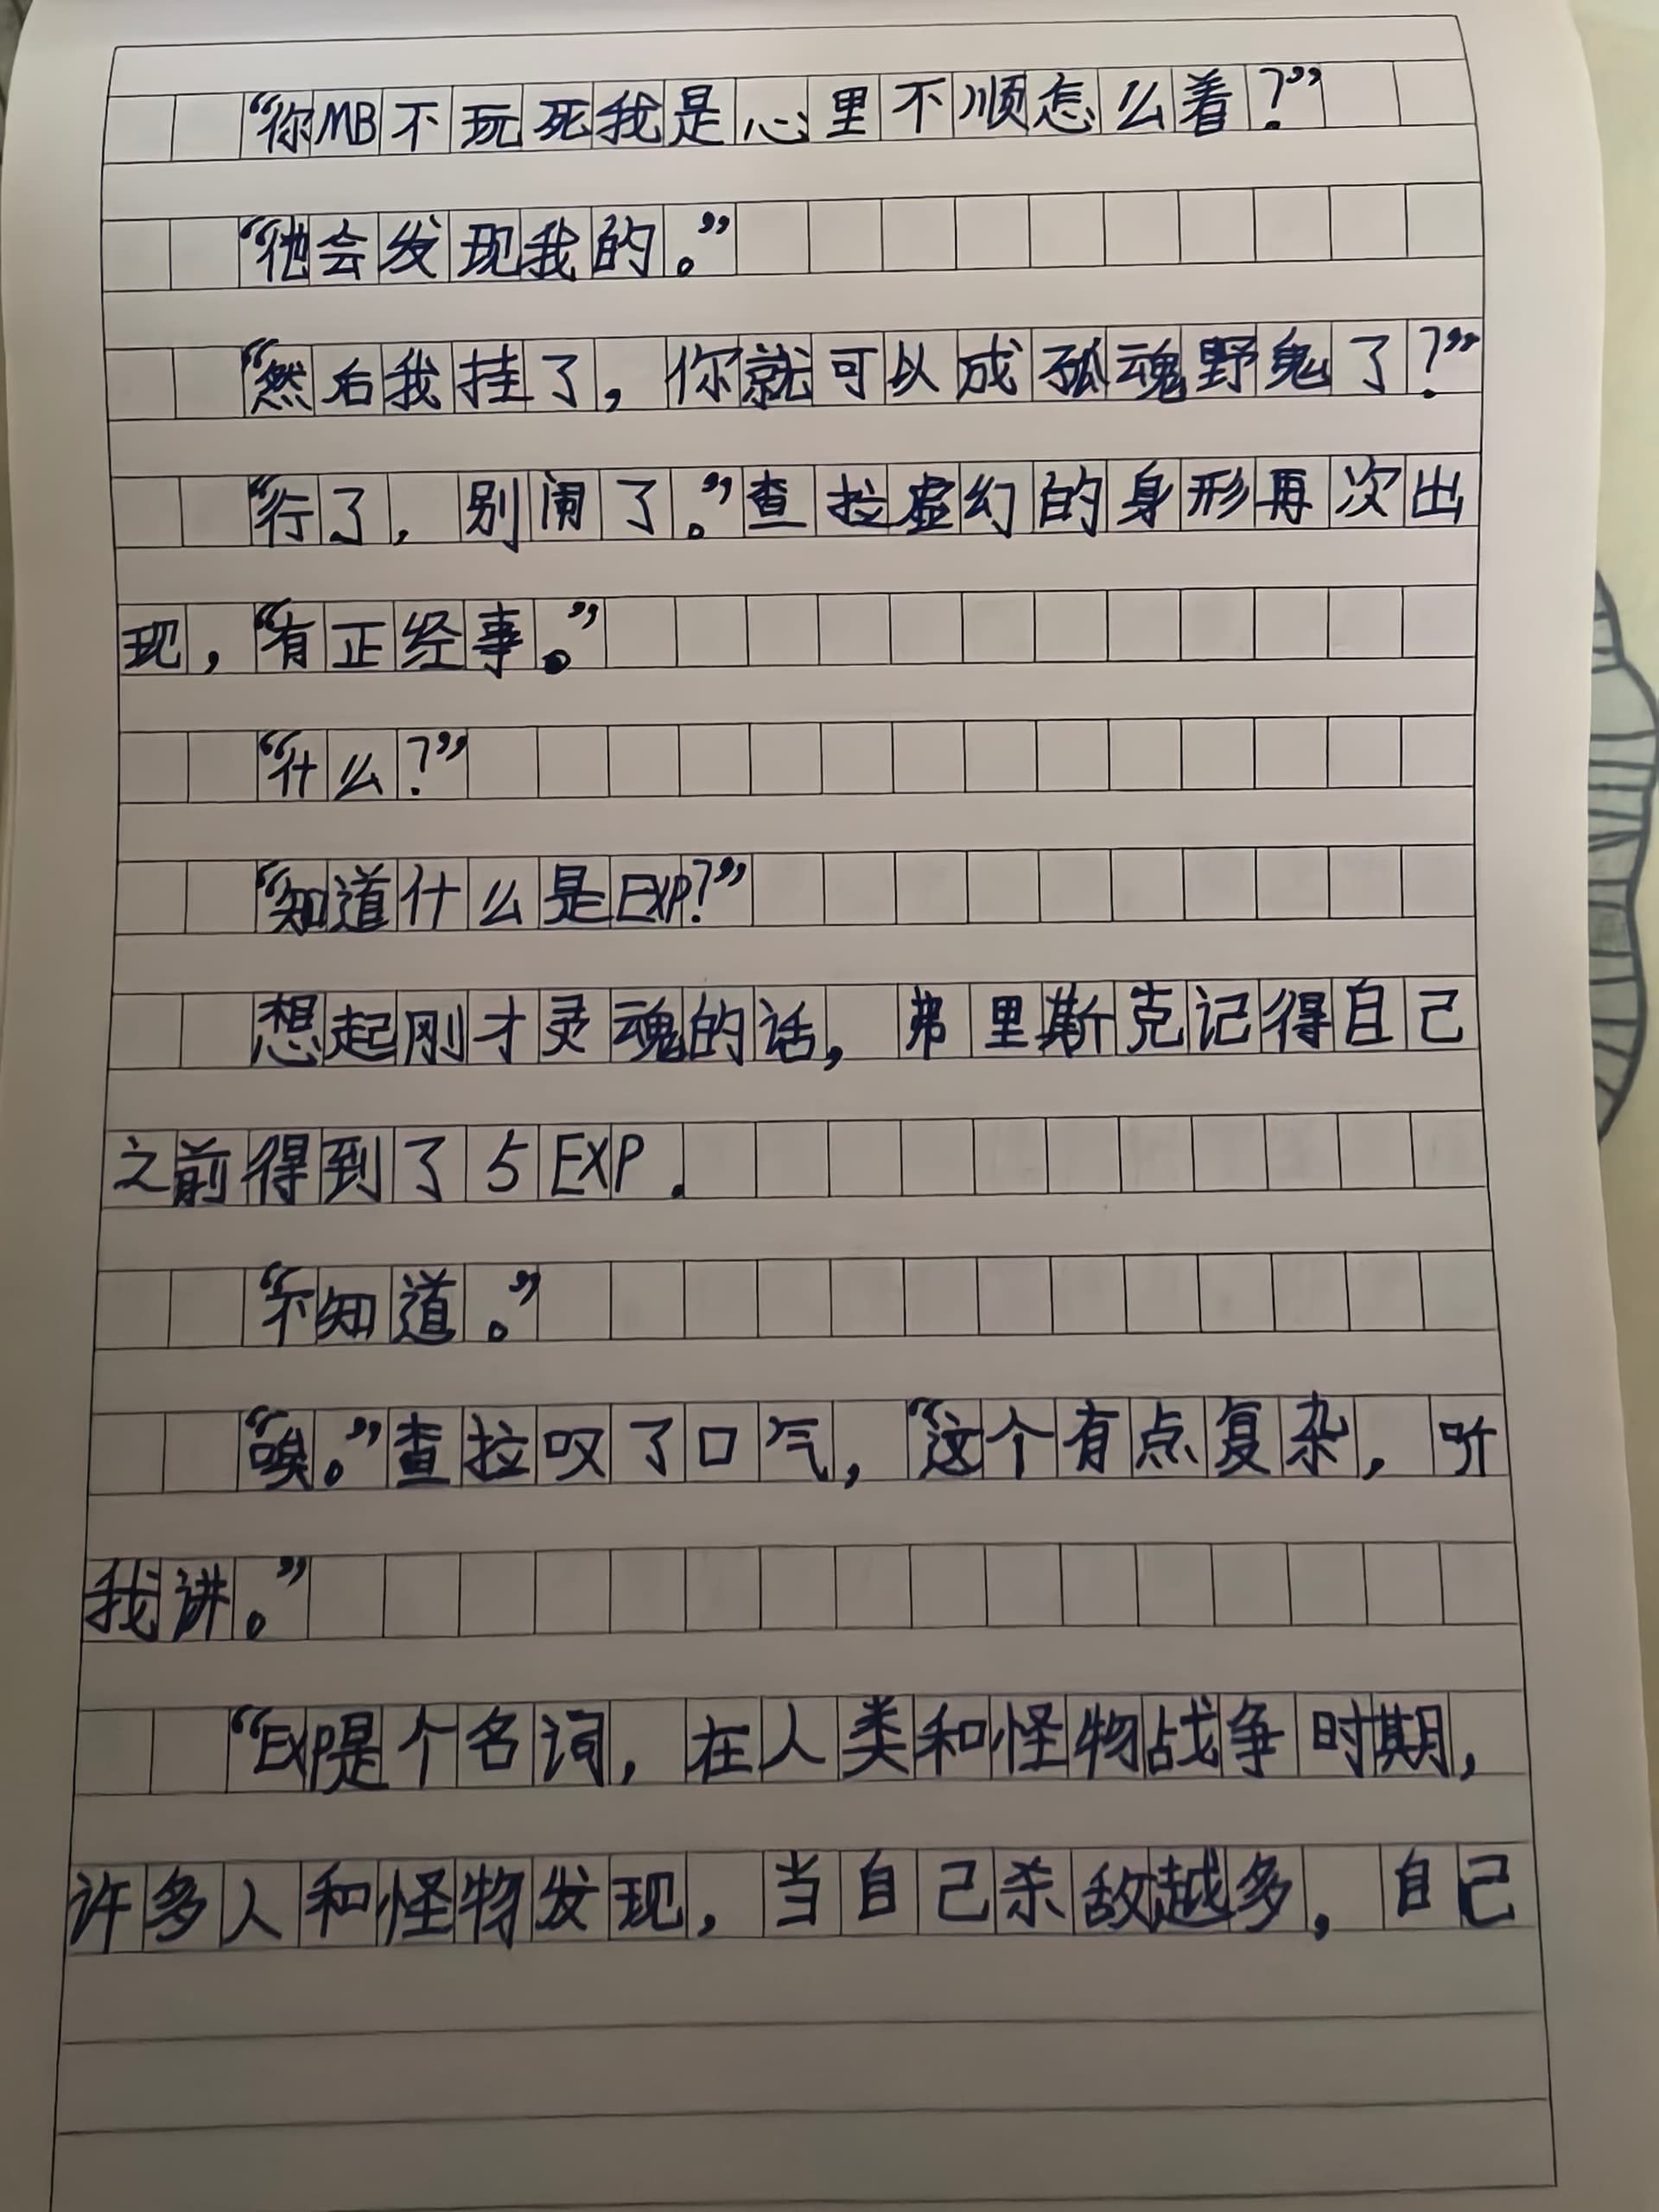 “你MB不玩死我是心里不顺怎么着?”
“他会发现我的。”
“然后我挂了,你就可以成孤魂野鬼了?”
“行了,别闹了。”查拉虚幻的身形再次出
现,“有正经事。”
“什么?”
“知道什么是EXP?”
想起刚才灵魂的话,弗里斯克记得自己
之前得到了5EXP.
“不知道。”
“唉。”查拉叹了口气,“这个有点复杂,听
我讲。”
“EXP是个名词,在人类和怪物战争时期,
许多人和怪物发现,当自己杀敌越多,自己